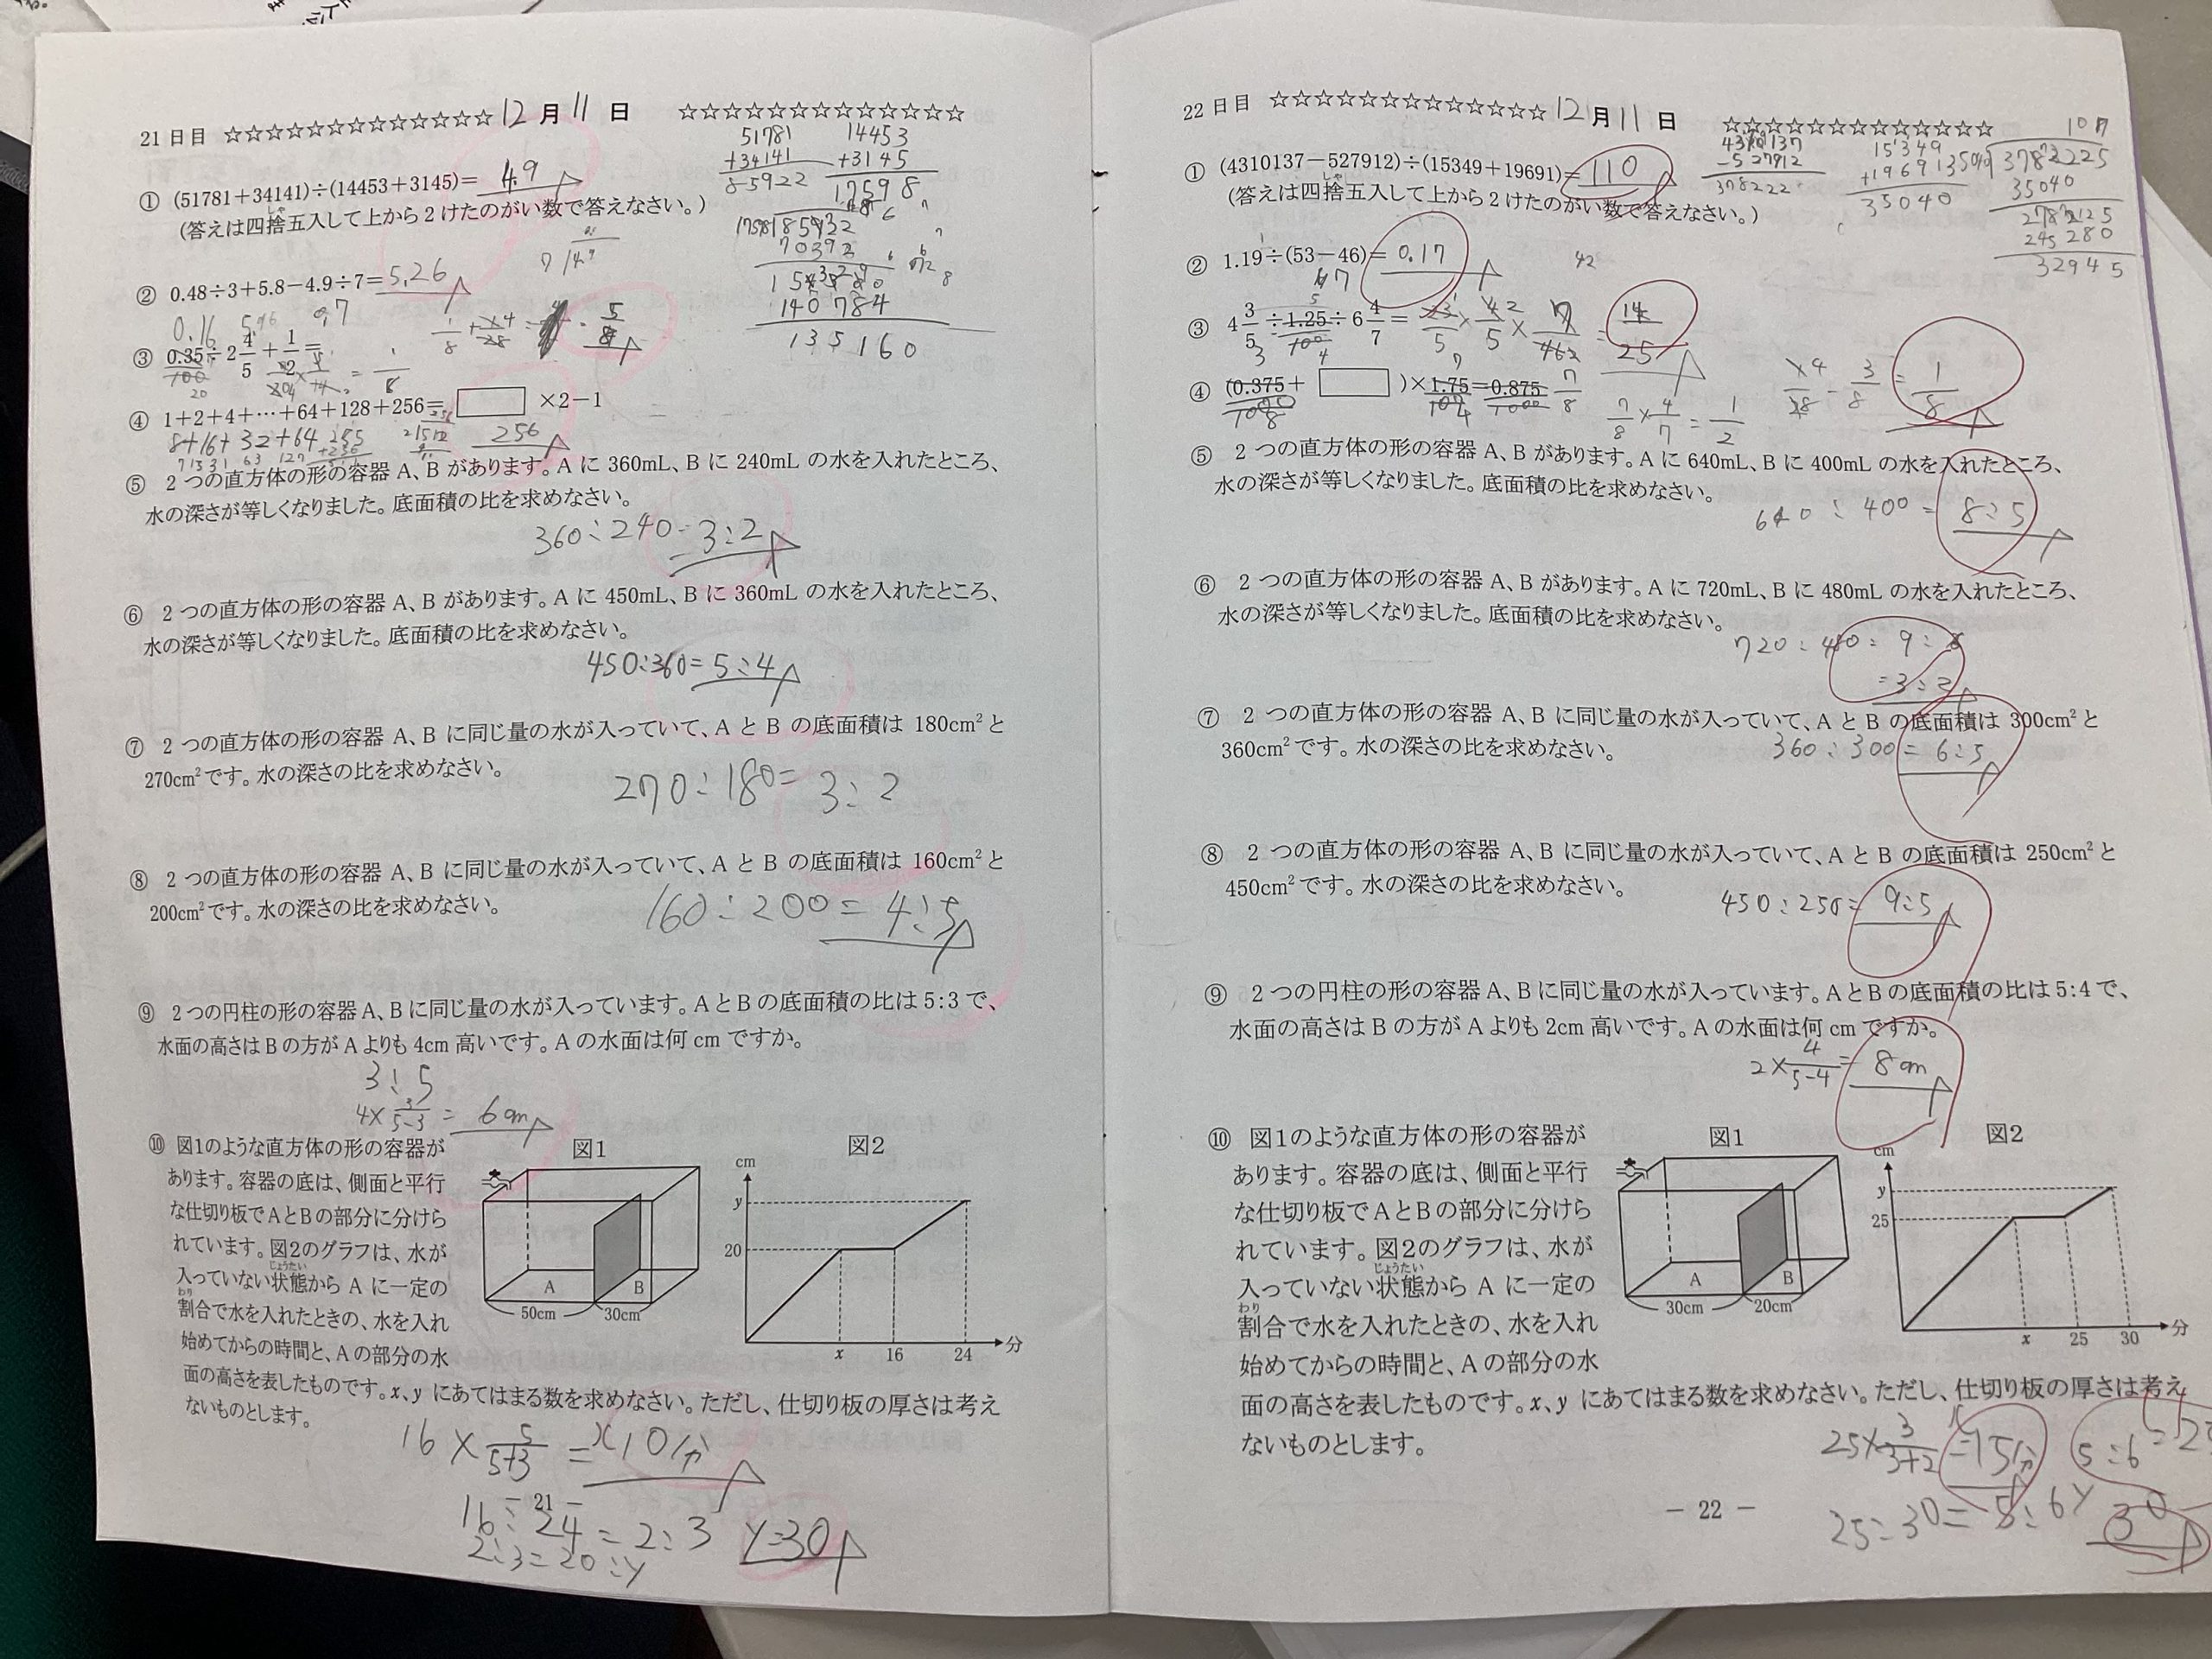 21日目 ☆☆☆☆☆☆☆☆☆☆☆☆☆ 12月11日 ☆☆☆☆☆☆☆☆☆☆☆☆☆☆
① (51781+34141)÷(14453+3145)= 4.9
(答えは四捨五入して上から2けたのがい数で答えなさい。)
51781
+34141
85922
14453
+3145
17598
② 0.48÷3+5.8−4.9÷7= 5.26
0.16
③ 0.35÷2 4/5+1/2=
5/8
④ 1+2+4+…+64+128+256=□×2−1
256
⑤ 2つの直方体の形の容器A、Bがあります。Aに360mL、Bに240mLの水を入れたところ、
水の深さが等しくなりました。底面積の比を求めなさい。
360:240=3:2
⑥ 2つの直方体の形の容器A、Bがあります。Aに450mL、Bに360mLの水を入れたところ、
水の深さが等しくなりました。底面積の比を求めなさい。
450:360=5:4
⑦ 2つの直方体の形の容器A、Bに同じ量の水が入っていて、AとBの底面積は180cm²と
270cm²です。水の深さの比を求めなさい。
270:180=3:2
⑧ 2つの直方体の形の容器A、Bに同じ量の水が入っていて、AとBの底面積は160cm²と
200cm²です。水の深さの比を求めなさい。
160:200=4:5
⑨ 2つの円柱の形の容器A、Bに同じ量の水が入っています。AとBの底面積の比は5:3で、
水面の高さはBの方がAよりも4cm高いです。Aの水面は何cmですか。
3:5
4×3/5-3=6cm
⑩ 図1のような直方体の形の容器が
あります。容器の底は、側面と平行
な仕切り板でAとBの部分に分けら
れています。図2のグラフは、水が
入っていない状態からAに一定の
割合で水を入れたときの、水を入れ
始めてからの時間と、Aの部分の水
面の高さを表したものです。x、yにあてはまる数を求めなさい。ただし、仕切り板の厚さは考え
ないものとします。
図1
A
B
50cm
30cm
図2
cm
y
20
x
16
24
分
16×5/5+3=x10分
16:24=2:3
2:3=20:y
y=30
− 21 −
22日目 ☆☆☆☆☆☆☆☆☆☆☆☆☆☆ 12月11日 ☆☆☆☆☆☆☆☆☆☆☆☆☆
① (4310137−527912)÷(15349+19691)= 110
(答えは四捨五入して上から2けたのがい数で答えなさい。)
15349
+19691
35040
107
35040
245280
32945
② 1.19÷(53−46)= 0.17
42
③ 4 3/5÷1.25÷6 4/7=
14/25
④ (0.375+□)×1.75=0.875
7/8×4/7=1/2
1/8
⑤ 2つの直方体の形の容器A、Bがあります。Aに640mL、Bに400mLの水を入れたところ、
水の深さが等しくなりました。底面積の比を求めなさい。
640:400=8:5
⑥ 2つの直方体の形の容器A、Bがあります。Aに720mL、Bに480mLの水を入れたところ、
水の深さが等しくなりました。底面積の比を求めなさい。
720:480=9:6
=3:2
⑦ 2つの直方体の形の容器A、Bに同じ量の水が入っていて、AとBの底面積は300cm²と
360cm²です。水の深さの比を求めなさい。
360:300=6:5
⑧ 2つの直方体の形の容器A、Bに同じ量の水が入っていて、AとBの底面積は250cm²と
450cm²です。水の深さの比を求めなさい。
450:250=9:5
⑨ 2つの円柱の形の容器A、Bに同じ量の水が入っています。AとBの底面積の比は5:4で、
水面の高さはBの方がAよりも2cm高いです。Aの水面は何cmですか。
2×4/5-4=8cm
⑩ 図1のような直方体の形の容器が
あります。容器の底は、側面と平行
な仕切り板でAとBの部分に分けら
れています。図2のグラフは、水が
入っていない状態からAに一定の
割合で水を入れたときの、水を入れ
始めてからの時間と、Aの部分の水
面の高さを表したものです。x、yにあてはまる数を求めなさい。ただし、仕切り板の厚さは考え
ないものとします。
図1
A
B
30cm
20cm
図2
cm
y
25
x
25
30
分
25×3/3+2=15分
5:6=
25:30=5:6
y
30
− 22 −